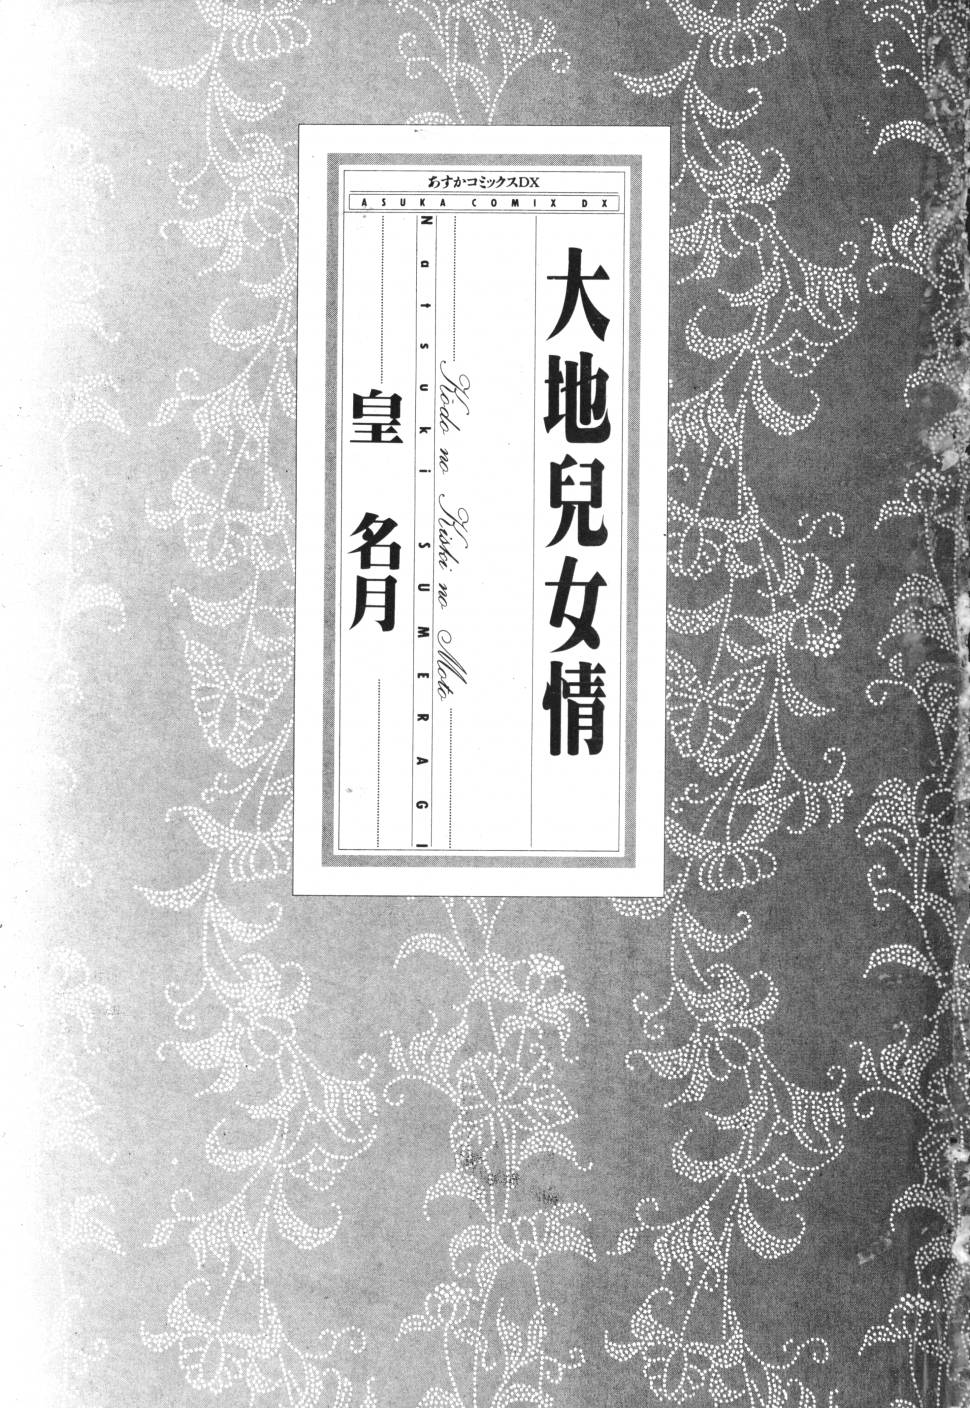 あすかコミックスDX
ASUKA COMIX DX
大地兒女情
Kodo no Kishi no Moto
Natsuki SUMERAGI
皇 名月